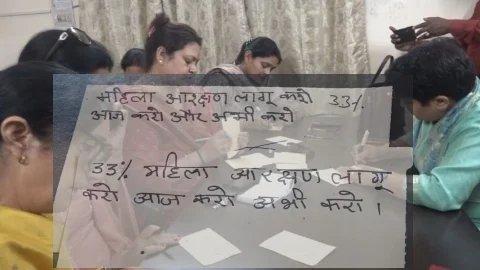 महिला आरक्षण लागू करो 33%
आज करो और अभी करो
33% महिला आरक्षण लागू
करो आज करो अभी करो।